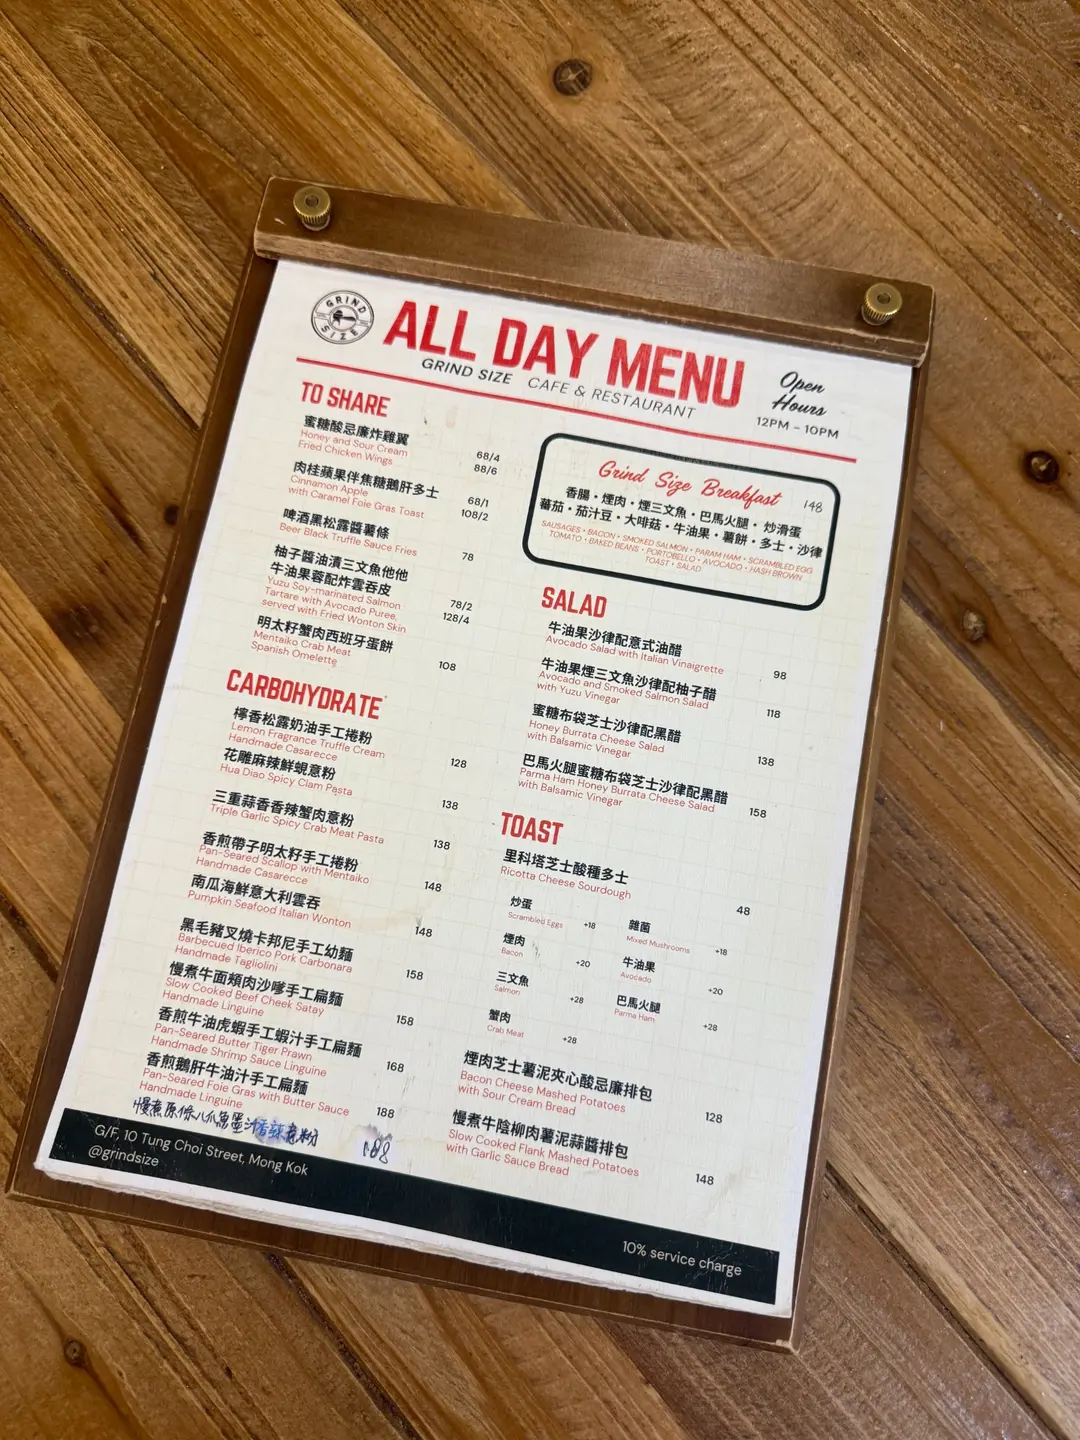 GRIND SIZE
ALL DAY MENU
GRIND SIZE CAFE & RESTAURANT
Open
Hours
12PM - 10PM
TO SHARE
蜜糖酸忌廉炸雞翼
Honey and Sour Cream
Fried Chicken Wings
68/4
88/6
肉桂蘋果伴焦糖鵝肝多士
Cinnamon Apple
with Caramel Foie Gras Toast
68/1
108/2
啤酒黑松露醬薯條
Beer Black Truffle Sauce Fries
78
柚子醬油漬三文魚他他
牛油果蓉配炸雲吞皮
Yuzu Soy-marinated Salmon
Tartare with Avocado Puree,
served with Fried Wonton Skin
78/2
128/4
明太籽蟹肉西班牙蛋餅
Mentaiko Crab Meat
Spanish Omelette
108
CARBOHYDRATE
檸香松露奶油手工捲粉
Lemon Fragrance Truffle Cream
Handmade Casarecce
128
花雕麻辣鮮蜆意粉
Hua Diao Spicy Clam Pasta
138
三重蒜香香辣蟹肉意粉
Triple Garlic Spicy Crab Meat Pasta
138
香煎帶子明太籽手工捲粉
Pan-Seared Scallop with Mentaiko
Handmade Casarecce
148
南瓜海鮮意大利雲吞
Pumpkin Seafood Italian Wonton
148
黑毛豬叉燒卡邦尼手工幼麵
Barbecued Iberico Pork Carbonara
Handmade Tagliolini
158
慢煮牛面頰肉沙嗲手工扁麵
Slow Cooked Beef Cheek Satay
Handmade Linguine
158
香煎牛油虎蝦手工蝦汁手工扁麵
Pan-Seared Butter Tiger Prawn
Handmade Shrimp Sauce Linguine
168
香煎鵝肝牛油汁手工扁麵
Pan-Seared Foie Gras with Butter Sauce
Handmade Linguine
188
慢煮原條八爪魚墨汁香辣意粉 188
Grind Size Breakfast 148
香腸・煙肉・煙三文魚・巴馬火腿・炒滑蛋
蕃茄・茄汁豆・大啡菇・牛油果・薯餅・多士・沙律
SAUSAGES • BACON • SMOKED SALMON • PARAM HAM • SCRAMBLED EGG
TOMATO • BAKED BEANS • PORTOBELLO • AVOCADO • HASH BROWN
TOAST • SALAD
SALAD
牛油果沙律配意式油醋
Avocado Salad with Italian Vinaigrette
98
牛油果煙三文魚沙律配柚子醋
Avocado and Smoked Salmon Salad
with Yuzu Vinegar
118
蜜糖布袋芝士沙律配黑醋
Honey Burrata Cheese Salad
with Balsamic Vinegar
138
巴馬火腿蜜糖布袋芝士沙律配黑醋
Parma Ham Honey Burrata Cheese Salad
with Balsamic Vinegar
158
TOAST
里科塔芝士酸種多士
Ricotta Cheese Sourdough
48
炒蛋
Scrambled Eggs +18
雜菌
Mixed Mushrooms +18
煙肉
Bacon +20
牛油果
Avocado +20
三文魚
Salmon +28
巴馬火腿
Parma Ham +28
蟹肉
Crab Meat +28
煙肉芝士薯泥夾心酸忌廉排包
Bacon Cheese Mashed Potatoes
with Sour Cream Bread
128
慢煮牛陰柳肉薯泥蒜醬排包
Slow Cooked Flank Mashed Potatoes
with Garlic Sauce Bread
148
G/F, 10 Tung Choi Street, Mong Kok
@grindsize
10% service charge